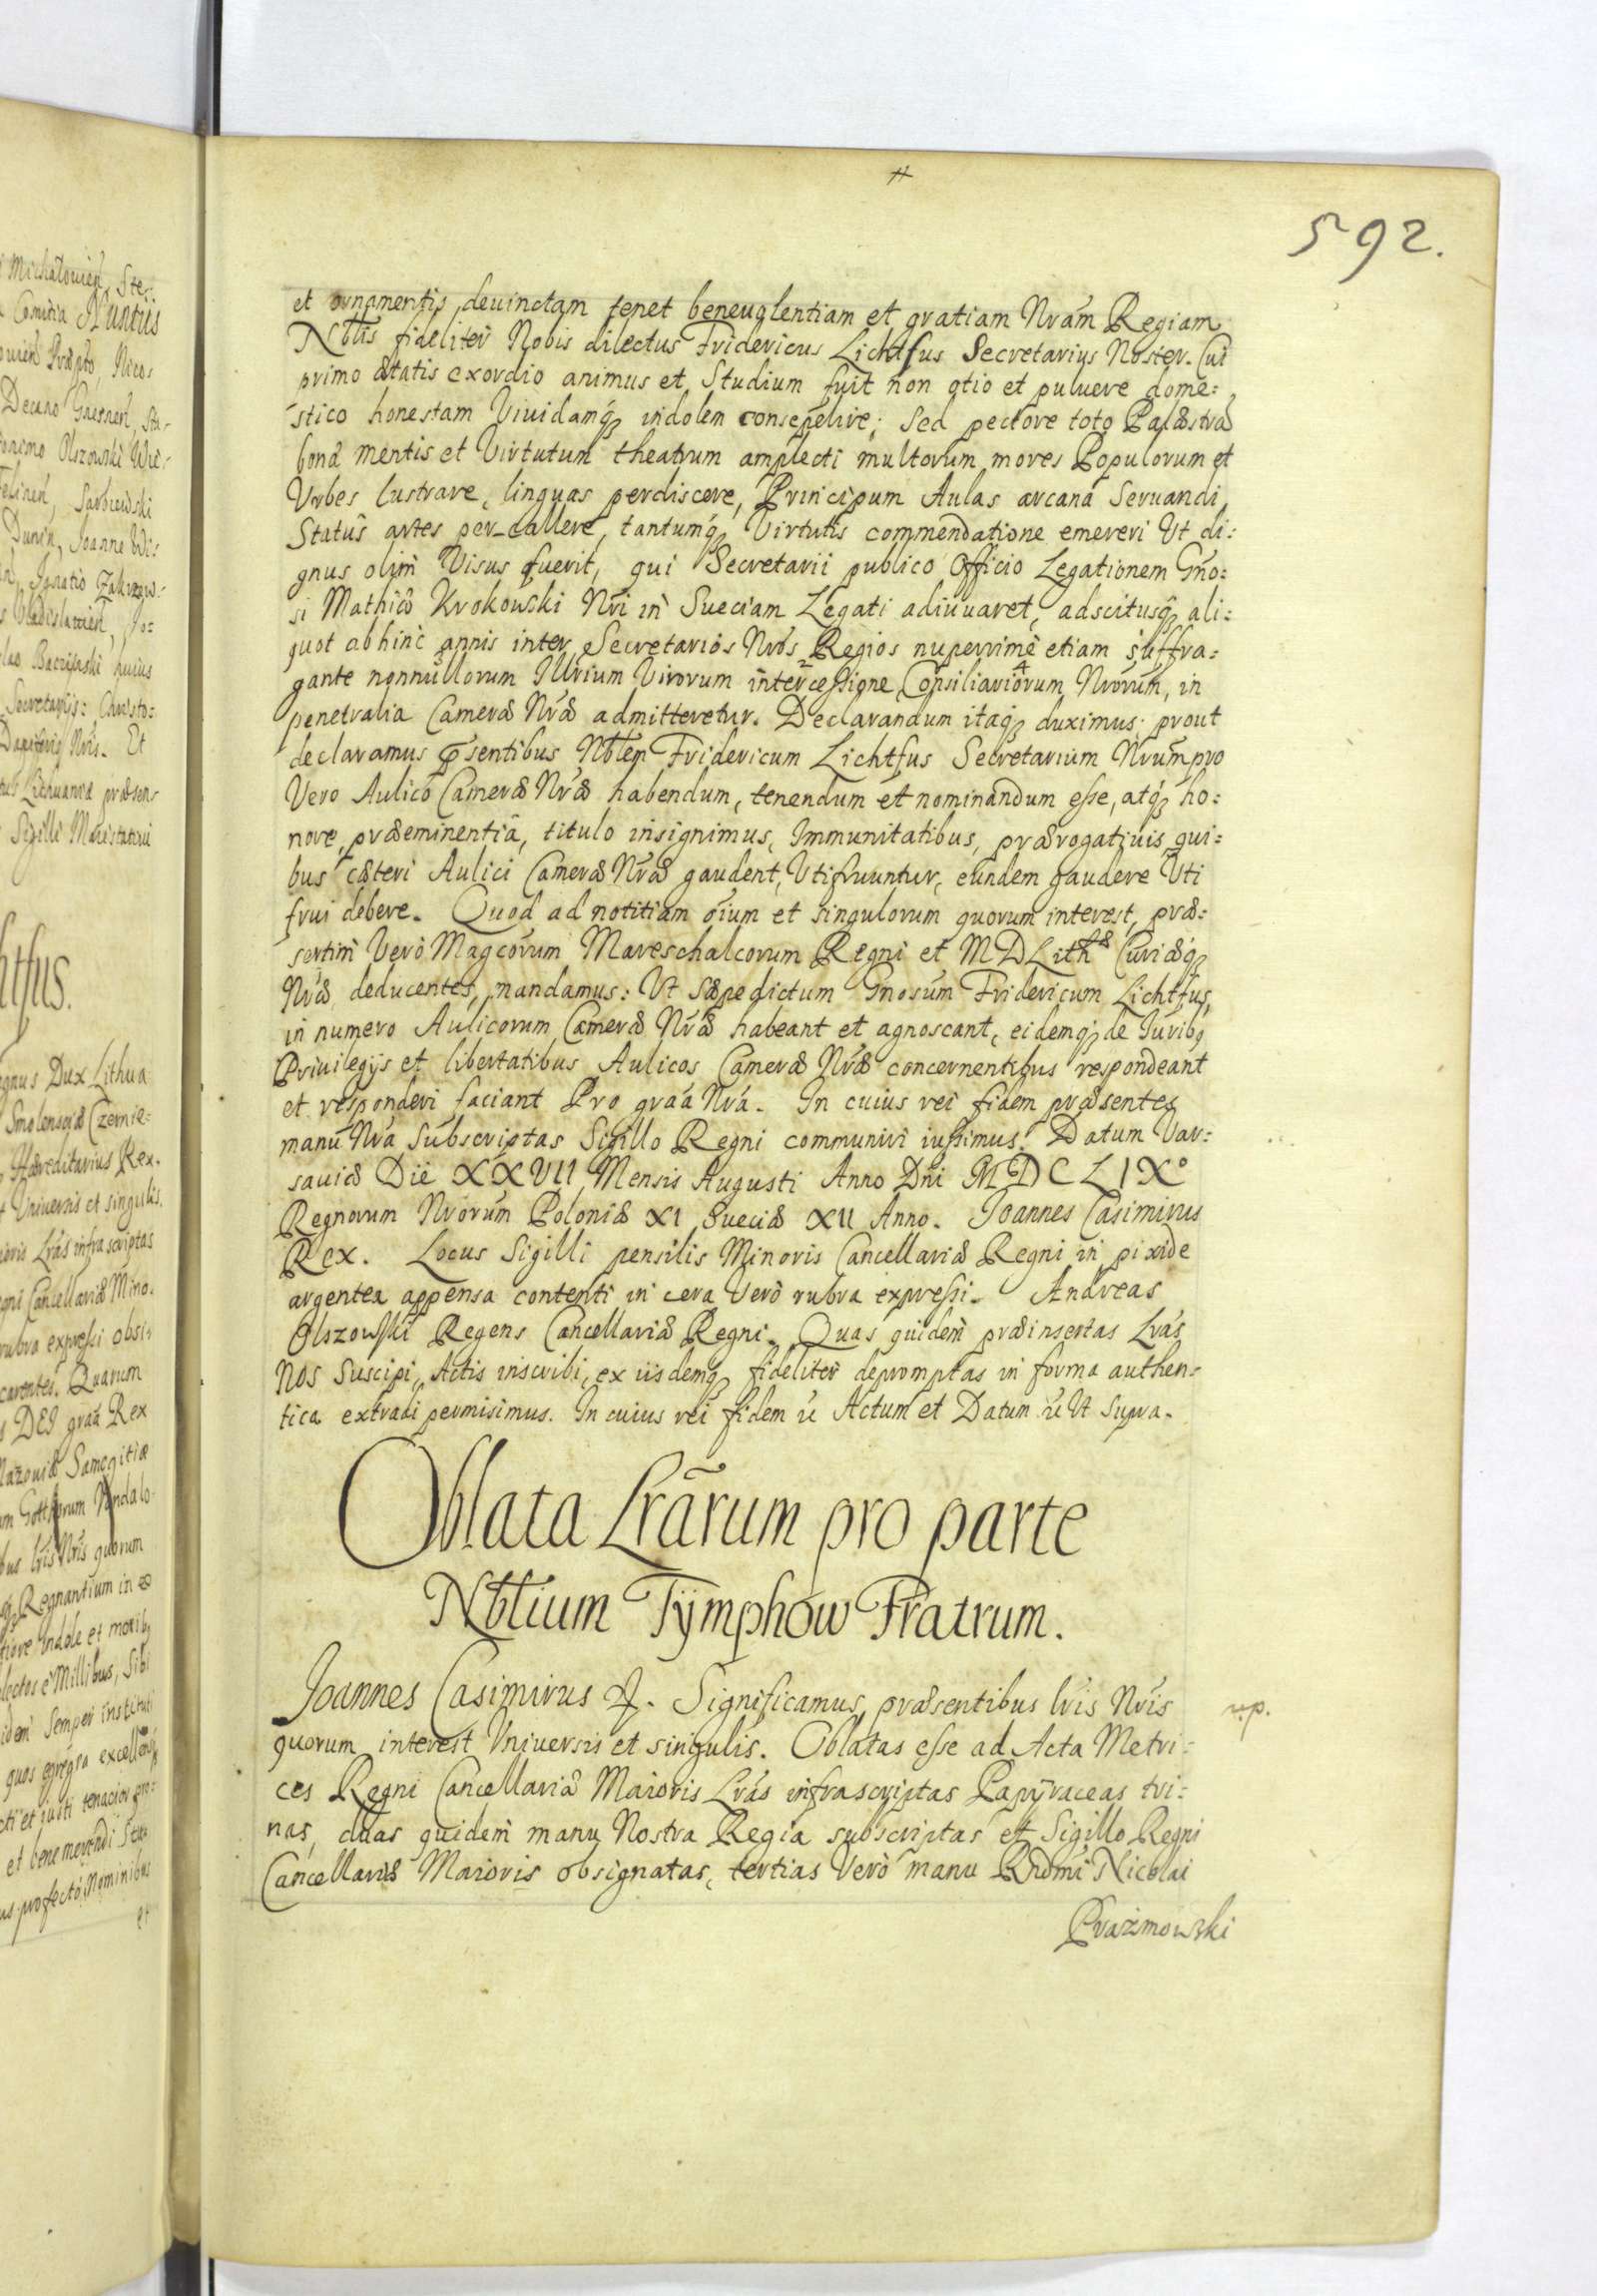 592.
et ornamentis devinctam tenet benevolentiam et gratiam Nrãm Regiam
Nbtlis fideliter Nobis dilectus Fridericus Lichtfus Secretarius Noster. Cui
primo ætatis exordio animus et Studium fuit non otio et puluere dome=
stico honestam Viuidamq; indolem consepelire; sed pectore toto Palæstrã
bonæ mentis et Virtutum theatrum amplecti multorum mores Populorum et
Vrbes lustrare, linguas perdiscere, Principum Aulas arcana Seruandi
Status artes per-callere, tantumq; Virtutis commendatione emereri Ut di=
gnus olim Visus fuerit, qui Secretarii publico Officio Legationem Gño=
si Mathiæ Krokowski Nri in Sueciam Legati adiuuaret, adscitusq; ali=
quot abhinc annis inter Secretarios Nros Regios nuperrimè etiam suffra=
gante nonnullorum Illrium Virorum intercessione Consiliariorum Nrorum, in
penetralia Cameræ Nræ admitteretur. Declarandum itaq; duximus; prout
declaramus p̃sentibus Nbtlem Fridericum Lichtfus Secretarium Nrum pro
Vero Aulico Cameræ Nræ habendum, tenendum et nominandum esse, atq; ho=
nore, præeminentiâ, titulo insignimus, Immunitatibus, prærogatiuis qui=
bus cæteri Aulici Cameræ Nræ gaudent, Utifruuntur, eundem gaudere Uti
frui debere. Quod ad notitiam oĩum et singulorum quorum interest, præ=
sertim Verò Magcorum Mareschalcorum Regni et M D Lithæ Curiæq;
Nræ deducentes, mandamus: Ut sæpedictum Gnosum Fridericum Lichtfus,
in numero Aulicorum Cameræ Nræ habeant et agnoscant, eidemq; de Iuribq
Priuilegijs et libertatibus Aulicos Cameræ Nræ concernentibus respondeant
et responderi faciant Pro graã Nra. In cuius rei fidem præsentes
manu Nra Subscriptas Sigillo Regni communiri iussimus. Datum Var=
sauiæ Die XXVII Mensis Augusti Anno Dñi MDCLIXo
Regnorum Nrorum Poloniæ XI Sueciæ XII Anno. Joannes Casimirus
Rex. Locus Sigilli pensilis Minoris Cancellariæ Regni in pixide
argentea appensa contenti in cera Verò rubra expressi. Andreas
Olszowski Regens Cancellariæ Regni. Quas quidem præinsertas Lrãs
Nos Suscipi, Actis inscribi, ex iisdemq; fideliter depromptas in forma authen=
tica extradi permisimus. In cuius rei fidem ũ Actum et Datum ũ Ut Supra.
Oblata Lrãrum pro parte
Nbtlium Tÿmphow Fratrum.
Joannes Casimirus. Significamus præsentibus lris Nris
quorum interest Vniuersis et singulis. Oblatas esse ad Acta Metri=
ces Regni Cancellariæ Maioris Lrãs infrascriptas Papÿraceas tri=
nas, duas quidem manu Nostra Regia subscriptas et Sigillo Regni
Cancellariæ Maioris obsignatas, tertias Verò manu Rndmi Nicolai
Prażmowski